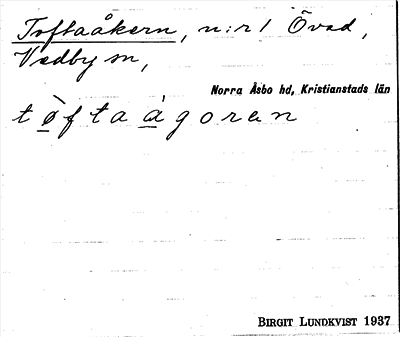 Toftaåkern, n:r 1 Övad,
Vedby sn,
Norra Åsbo hd, Kristianstads län
tø̀fta ågoran
BIRGIT LUNDKVIST 1937